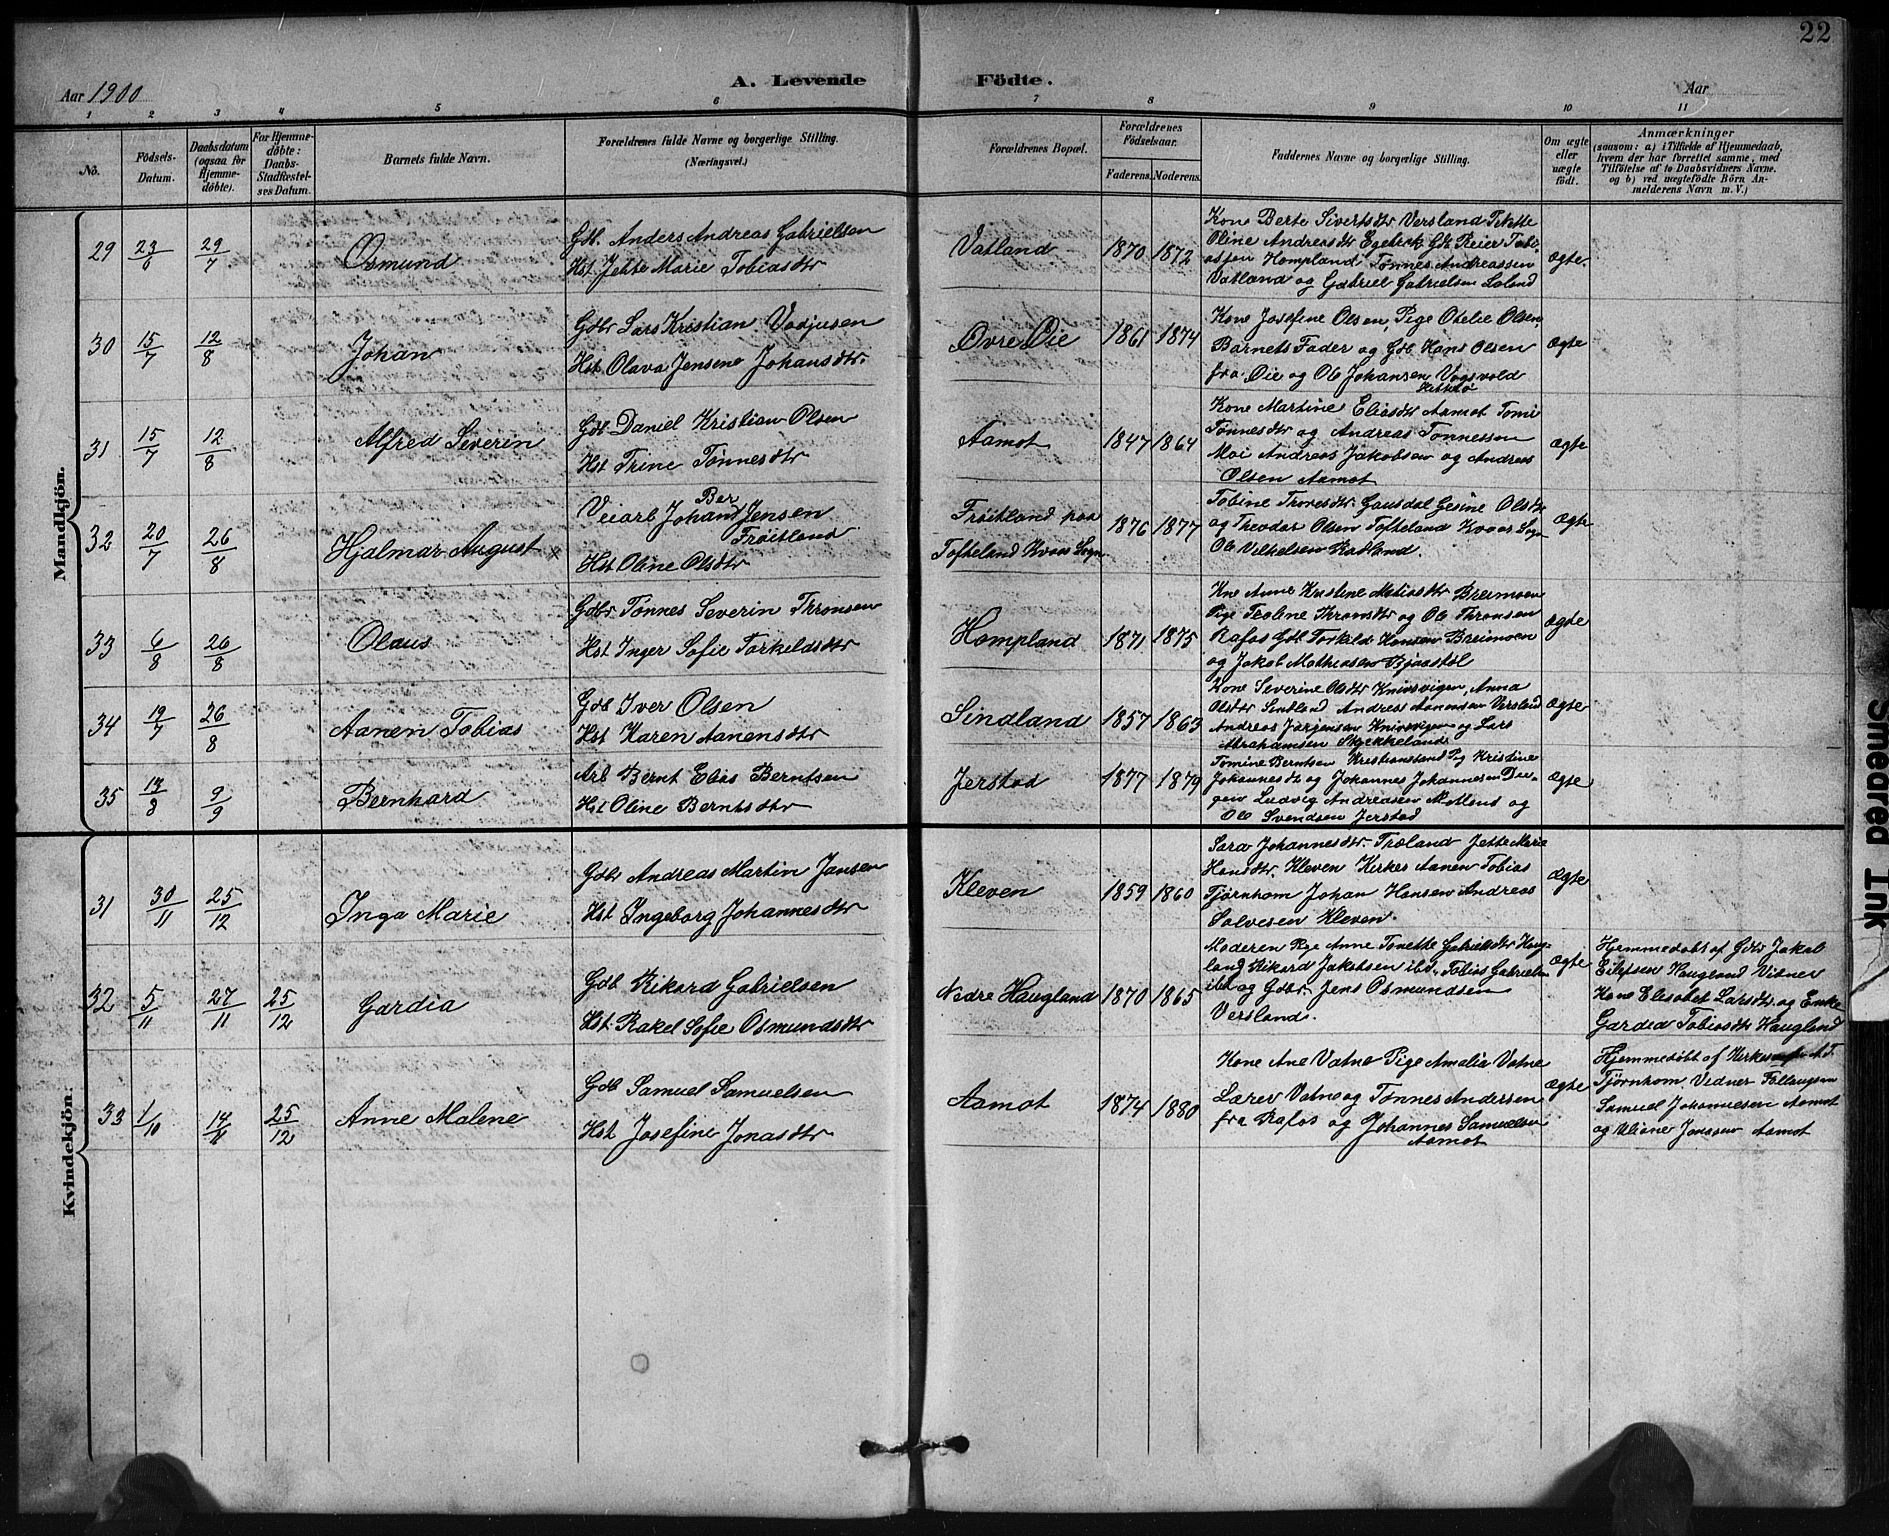 22
A. Levende Födte.
Aar 1900
Aar
1 2 3 4 5 6 7 8 9 10 11
No.
Födsels-Datum.
Daabsdatum (ogsaa for Hjemme-döbte).
For Hjemme-döbte: Daabs-Stadfæstel-ses Datum.
Barnets fulde Navn.
Forældrenes fulde Navne og borgerlige Stilling.
(Næringsvei.)
Forældrenes Bopæl.
Forældrenes Födselsaar.
Faderens. Moderens.
Faddernes Navne og borgerlige Stilling.
Om ægte eller uægte födt.
Anmærkninger
(saasom: a) i Tilfælde af Hjemmedaab,
hvem der har forrettet samme, med
Tilföielse af to Daabsvidners Navne.
og b) ved uægtefödte Börn An-
melderens Navn m. V.)
Mandkjön.
29 23/6 29/7 Osmund
Gdb. Anders Andreas Gabrielsen
Hst. Jette Marie Tobiasdtr
Vatland 1870 1872
Kone Berte Sivertsdtr Versland Tekette
Oline Andreasdtr Egebæk Gdb Reier Tobi-
assen Hompland Tønnes Andreassen
Vatland og Gabriel Gabrielsen Laland
Ægte.
30 15/7 12/8 Johan
Gdbr Lars Kristian Vodjusen
Hst Olava Jensene Johansdtr.
Øvre Øie 1861 1874
Kone Josefine Olsen, Pige Otelie Olsen,
Barnets Fader og Gdb. Hans Olsen
fra Øie og Ole Johansen Vogsvold
Ægte
31 15/7 12/8 Alfred Severin
Gdb Daniel Kristian Olsen
Hst Trine Tønnesdtr
Aamot 1847 1864
Kone Martine Eliasdtr Aamot Tomi
Tønnesdtr og Andreas Tønnessen
Moi Andreas Jakobsen og Andreas
Olsen Aamot
Ægte
32 20/7 26/8 Hjalmar August x
Veiarb Johan Ber Jensen
Frøitland
Hst Oline Olsdtr
Frøitland paa
Tofteland Kvaas Sogn
1876 1877
Tobine Tronesdtr. Gausdal Gesine Olsdtr
og Theodor Olsen Tofteland Kvaas Sogn
Ole Vilhelsen Rodland.
Ægte
33 6/8 26/8 Olaus
Gdbr Tønnes Severin Thronsen
Hst Inger Sofie Torkeldsdtr
Hompland 1871 1875
Kne Anne Kristene Matiasdtr Breimoen
Pige Teoline Thronsdtr og Ole Thronsen
Rafos Gdb Torkild Hansen Breimoen
og Jakob Mathiasen Bjaastøl
Ægte
34 19/7 26/8 Aanen Tobias
Gdb Iver Olsen
Hst Karen Aanensdtr
Sindland 1857 1863
Kone Severine Olsdtr Knivsvigen, Anna
Olsdtr Sindland Andreas Aanensen Versland
Andreas Jørgensen Knivsvigen og Lars
Abrahamsen Skjekkeland
Ægte
35 14/8 9/9 Bernhard
Arb Bernt Elias Berntsen
Hst Oline Berntsdtr
Jerstad 1877 1879
Tomine Berntsen Kristianssand Pg Kristine
Johannesdtr og Johannes Johannesen
Ludvig Andreasen og
Ole Svendsen Jerstad
Ægte
Kvindekjön.
31 30/11 25/12 Inga Marie
Gdbr Andreas Martin Jansen
Hst Ingeborg Johannesdtr
Kleven 1859 1860
Sara Johannesdtr. Træland Jette Marie
Hansdtr. Kleven Kirkes Aanen Tobias
Tjørnhom Johan Hansen Andreas
Salvesen Kleven.
Ægte
32 5/11 27/11 25/12 Gardia
Gdb Rikard Gabrielsen
Hst. Rakel Sofie Osmundsdtr
Nedre Haugland 1870 1865
Moderen Pge Anne Tonette Gabrielsdtr Haug-
land Rikard Jakobsen ibd. Tobias Gabrielsen
ibd og Gdbr. Jens Osmundsen
Versland.
Ægte
Hjemmedøbt af Gdbr Jakob
Eilefsen Haugland Vidner
Kone Elisabet Larsdtr og Enke
Gardia Tobiasdtr Haugland
33 1/10 14/11 25/12 Anne Malene
Gdb Samuel Samuelsen
Hst Josefine Jonasdtr
Aamot 1874 1880
Kone Ane Vatne Pige Amalia Vatne
Lærer Vatne og Tønnes Andersen
fra Rafos og Johannes Samuelsen
Aamot
Ægte
Hjemmedøbt af Kirkesanger A.T.
Tjørnhom Vidner
Samuel Johannesen Aamot
og Aamot
Smeared Ink